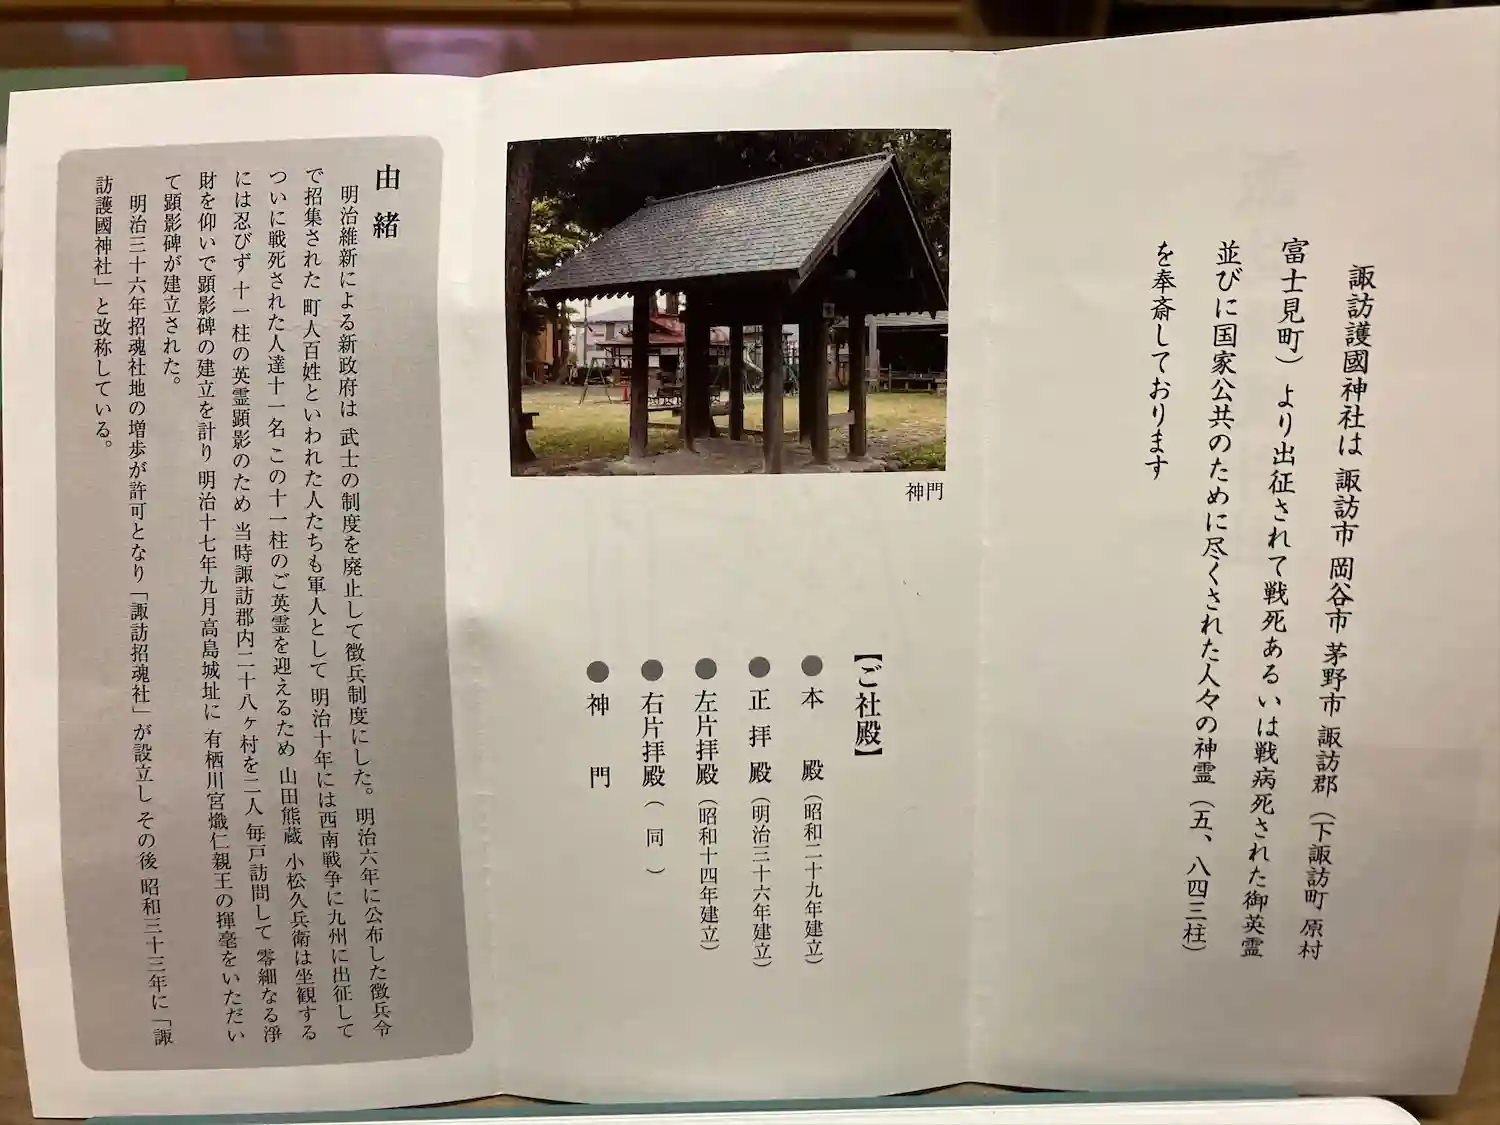 諏訪護國神社は 諏訪市 岡谷市 茅野市 諏訪郡（下諏訪町 原村
富士見町）より出征されて戦死あるいは戦病死された御英霊
並びに国家公共のために尽くされた人々の神霊（五、八四三柱）
を奉斎しております
神門
【ご社殿】
●本殿（昭和二十九年建立）
●正拝殿（明治三十六年建立）
●左片拝殿（昭和十四年建立）
●右片拝殿（同）
●神門
由緒
明治維新による新政府は 武士の制度を廃止して徴兵制度にした。明治六年に公布した徴兵令
で招集された 町人百姓といわれた人たちも軍人として 明治十年には西南戦争に九州に出征して
ついに戦死された人達十一名 この十一柱のご英霊を迎えるため 山田熊蔵 小松久兵衛は坐観する
には忍びず 十一柱の英霊顕影のため 当時諏訪郡内二十八ヶ村を二人 毎戸訪問して 零細なる淨
財を仰いで顕影碑の建立を計り 明治十七年九月高島城址に 有栖川宮熾仁親王の揮毫をいただい
て顕影碑が建立された。
明治三十六年招魂社地の増歩が許可となり「諏訪招魂社」が設立し その後 昭和三十三年に「諏
訪護國神社」と改称している。